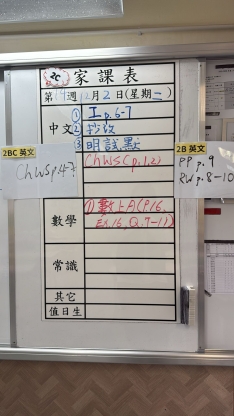 2C 家課表
第14週12月2日(星期二)
中文
① 工p.6-7
② 抄改
③ 明試默
ChWS(p.1,2)
2BC 英文
ChWSp.47
2B 英文
PP p.9
RWp.8-10
數學
① 數上A(P.16,
Ex.16,Q.9-11)
常識
其它
值日生